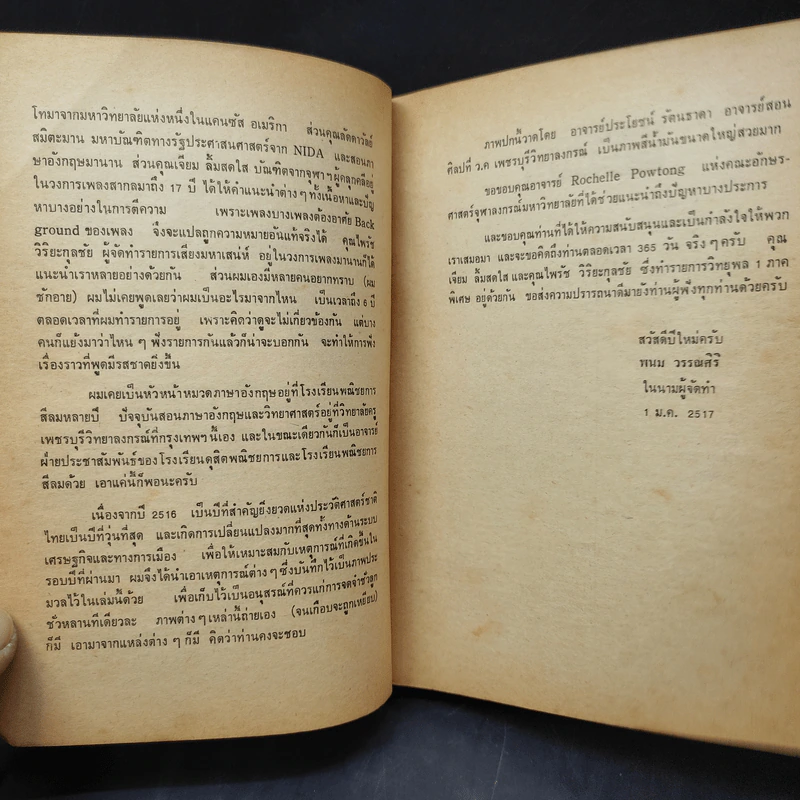 โทมาจากมหาวิทยาลัยแห่งหนึ่งในแคนซัส อเมริกา ส่วนคุณลัดดาวัลย์
สมิตะมาน มหาบัณฑิตทางรัฐประศาสนศาสตร์จาก NIDA และสอนภา
ษาอังกฤษมานาน ส่วนคุณเจียม ลิ้มสดใส บัณฑิตจากจุฬาฯผู้คลุกคลีอยู่
ในวงการเพลงสากลมาถึง 17 ปี ได้ให้คำแนะนำต่างๆทั้งเนื้อหาและปัญ
หาบางอย่างในการตีความ เพราะเพลงบางเพลงต้องอาศัย Back
ground ของเพลง จึงจะแปลถูกความหมายอันแท้จริงได้ คุณไพรัช
วิริยะกุลชัย ผู้จัดทำรายการเสียงมหาเสน่ห์ อยู่ในวงการเพลงมานานก็ได้
แนะนำเราหลายอย่างด้วยกัน ส่วนผมเองมีหลายคนอยากทราบ (ผม
ชักอาย) ผมไม่เคยพูดเลยว่าผมเป็นอะไรมาจากไหน เป็นเวลาถึง 6 ปี
ตลอดเวลาที่ผมทำรายการอยู่ เพราะคิดว่าดูจะไม่เกี่ยวข้องกัน แต่บาง
คนก็แย้งมาว่าไหน ๆ ฟังรายการกันแล้วก็น่าจะบอกกัน จะทำให้การฟัง
เรื่องราวที่พูดมีรสชาดยิ่งขึ้น
ผมเคยเป็นหัวหน้าหมวดภาษาอังกฤษอยู่ที่โรงเรียนพณิชยการ
สีลมหลายปี ปัจจุบันสอนภาษาอังกฤษและวิทยาศาสตร์อยู่ที่วิทยาลัยครู
เพชรบุรีวิทยาลงกรณ์ที่กรุงเทพฯนี้เอง และในขณะเดียวกันก็เป็นอาจารย์
ฝ่ายประชาสัมพันธ์ของโรงเรียนดุสิตพณิชยการและโรงเรียนพณิชยการ
สีลมด้วย เอาแค่นี้ก็พอนะครับ
เนื่องจากปี 2516 เป็นปีที่สำคัญยิ่งยวดแห่งประวัติศาสตร์ชาติ
ไทยเป็นปีที่วุ่นที่สุด และเกิดการเปลี่ยนแปลงมากที่สุดทั้งทางด้านระบบ
เศรษฐกิจและทางการเมือง เพื่อให้เหมาะสมกับเหตุการณ์ที่เกิดขึ้นใน
รอบปีที่ผ่านมา ผมจึงได้นำเอาเหตุการณ์ต่าง ๆ ซึ่งบันทึกไว้เป็นภาพประ
มวลไว้ในเล่มนี้ด้วย เพื่อเก็บไว้เป็นอนุสรณ์ที่ควรแก่การจดจำชั่วลูก
ชั่วหลานทีเดียวละ ภาพต่างๆเหล่านี้ถ่ายเอง (จนเกือบจะถูกเหยียบ)
ก็มี เอามาจากแหล่งต่าง ๆ ก็มี คิดว่าท่านคงจะชอบ
ภาพปกนี้วาดโดย อาจารย์ประโยชน์ รัตนธาดา อาจารย์สอน
ศิลปที่ ว.ค เพชรบุรีวิทยาลงกรณ์ เป็นภาพสีน้ำมันขนาดใหญ่สวยมาก
ขอขอบคุณอาจารย์ Rochelle Powtong แห่งคณะอักษร-
ศาสตร์จุฬาลงกรณ์มหาวิทยาลัยที่ได้ช่วยแนะนำถึงปัญหาบางประการ
และขอบคุณท่านที่ได้ให้ความสนับสนุนและเป็นกำลังใจให้พวก
เราเสมอมา และจะขอคิดถึงท่านตลอดเวลา 365 วัน จริงๆครับ คุณ
เจียม ลิ้มสดใส และคุณไพรัช วิริยะกุลชัย ซึ่งทำรายการวิทยุพล 1 ภาค
พิเศษ อยู่ด้วยกัน ขอส่งความปรารถนาดีมายังท่านผู้ฟังทุกท่านด้วยครับ
สวัสดีปีใหม่ครับ
พนม วรรณศิริ
ในนามผู้จัดทำ
1 ม.ค. 2517